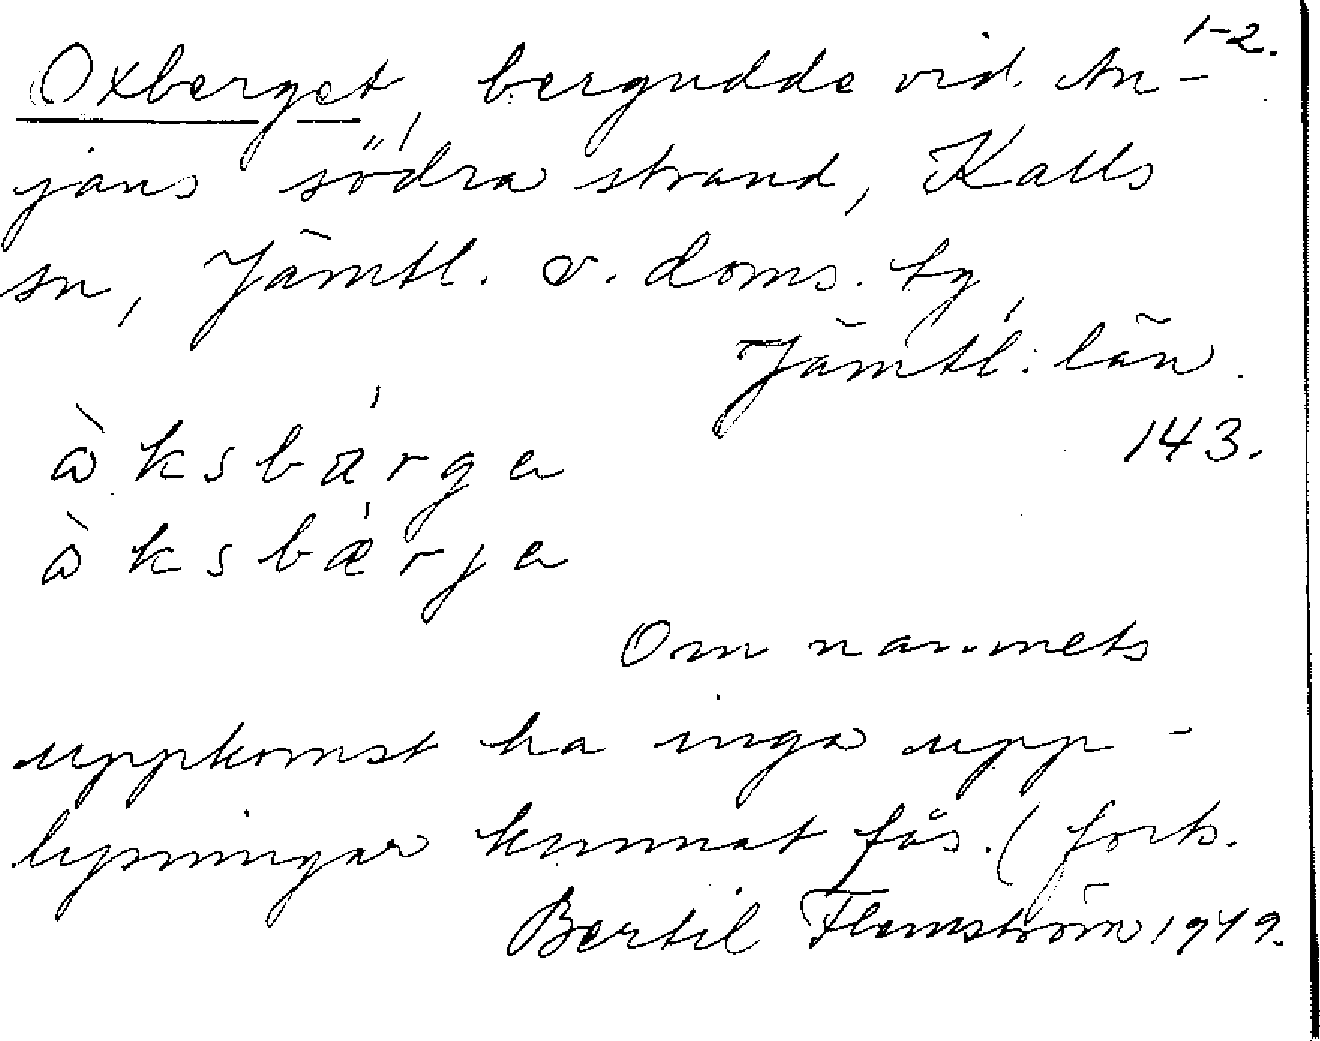 1-2.
Oxberget, bergudde vid An-
jans södra strand, Kalls
sn, Jämtl. v. doms. tg,
Jämtl: län.
143.
ὰksbá̀rga
ὰksbæ̀rja
Om namnets
uppkomst ha inga upp-
lysningar kunnat fås. (forts.
Bertil Flemström 1949.